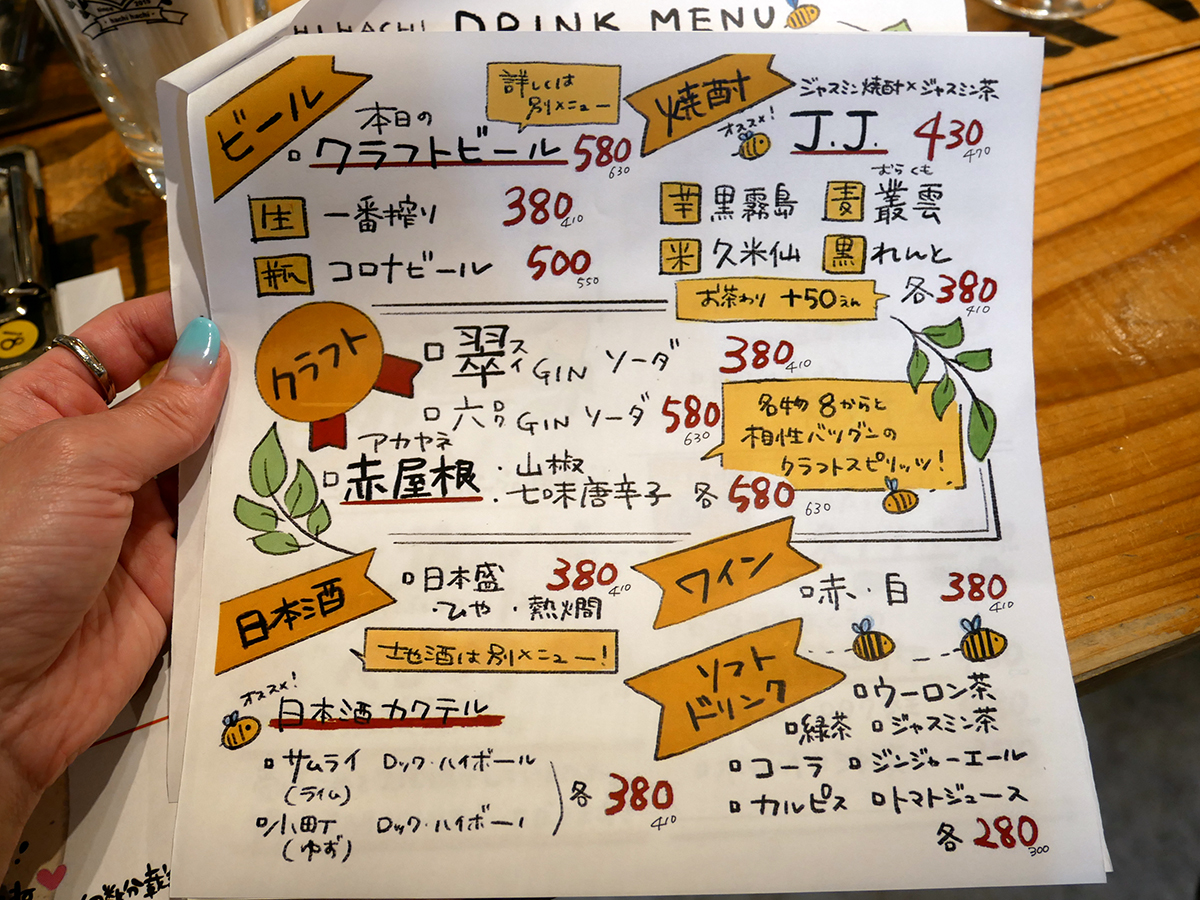 HI HACHI DRINK MENU
hachi hachi
ビール
詳しくは
別メニュー
本日の
クラフトビール 580
630
生 一番搾り 380
410
瓶 コロナビール 500
550
焼酎
ジャスミン焼酎×ジャスミン茶
オススメ!
J.J. 430
470
むらくも
芋 黒霧島 麦 叢雲
米 久米仙 黒 れんと
お茶わり +50えん
各380
410
クラフト
翠 スイ GIN ソーダ 380
410
六 ロク GIN ソーダ 580
630
アカヤネ
赤屋根 ・山椒
・七味唐辛子 各580
630
名物8からと
相性バツグンの
クラフトスピリッツ!
日本酒
日本盛 380
410
・ひや ・熱燗
地酒は別メニュー!
オススメ!
日本酒カクテル
サムライ ロック・ハイボール
(ライム)
小町 ロック・ハイボール
(ゆず)
各380
410
ワイン
赤・白 380
410
ソフト
ドリンク
ウーロン茶
緑茶 ジャスミン茶
コーラ ジンジャーエール
カルピス トマトジュース
各280
300
18